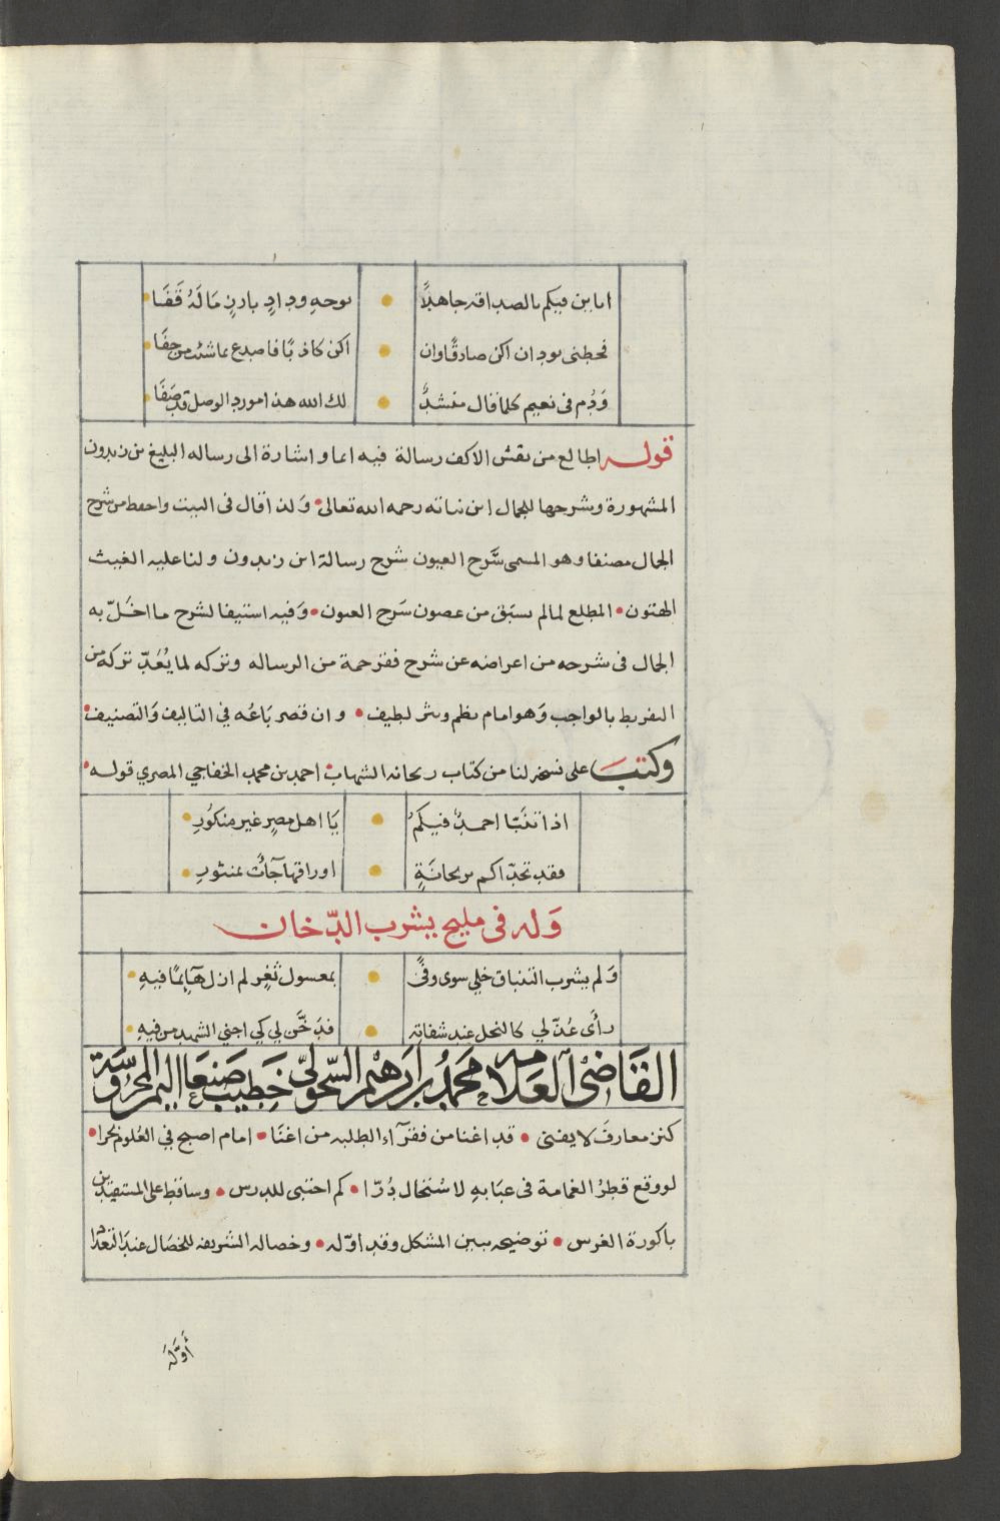 اباين فيكم بالصداقه جاهلاً • بوجهٍ ودادٍ بادنٍ مَا لَهُ قَفَا
فحطنى بود ان اكن صادقًا وان • اكن كاذبًا فاصدع بما شئت من جفَا
وَدُم فى نعيم كلما قال منشدٌ • لك الله هذا مورد الوصل قد صَفَا
قوله اطالع من نقش الاكف رسالة فيه ايما واشارة الى رساله البليغ بن زيدون
المشهورة وشرحها للجمال ابن نباته رحمه الله تعالى • وَلذا قال فى البيت واحفظ من شرح
الجمال مصنفا وهو المسمى سَرح العيون شرح رسالة ابن زيدون ولنا عليه الغيث
الهتون • المطلع لما لم يسبَق من غصون سَرح العيون • وَفيه استيفا لشرح ما اخَلّ به
الجمال فى شرحه من اعراضه عن شرح فقر جمة من الرساله وتركه لما يُعَدّ تركه من
التفريط بالواجب وَهو امام نظم ونثر لطيف • وان قصر بَاعُه في التاليف وَالتصنيف •
وكتبَ على نسخه لنا من كتاب ريحانه الشهاب احمد بن محمد الخفاجي المصري قوله •
اذا تنَبّا احمدٌ فيكمُ • يَا اهل مصرٍ غير منكُورِ •
فقد تحدّاكم بريحانَةٍ • اوراقها جَآءَتْ بمنثورِ •
وَله فى مليح يشرب الدّخان
وَلم يشرب التنباق خلي سوى وفىً • بمعسول ثَغرٍ لم ازل هَآئِمًا فيهِ •
رأى عُذّلي كالنحل عند شفاته • فدَخّن لي كي اجني الشهد من فيهِ •
القَاضى العَلامه محمَّدُ بن ابرَهيم السّحوليّ خَطِيب صَنعَا اليمن المحرُوسَة
كنز معارفَ لا يفنى • قد اغنا من فقرآء الطلبه من اغنَا • امام اصبح في العُلوم بحرا •
لو وقع قطرُ الغمامة فى عبَابهِ لاسْتحَال دُرّا • كم احتبى للدرس • وساقط على المستفيدين
باكورة الغرس • توضيحه يبين المشكل وقد اوّله • وخصاله الشريفه للخصَال عند التعدَاد
أَوَّلَه